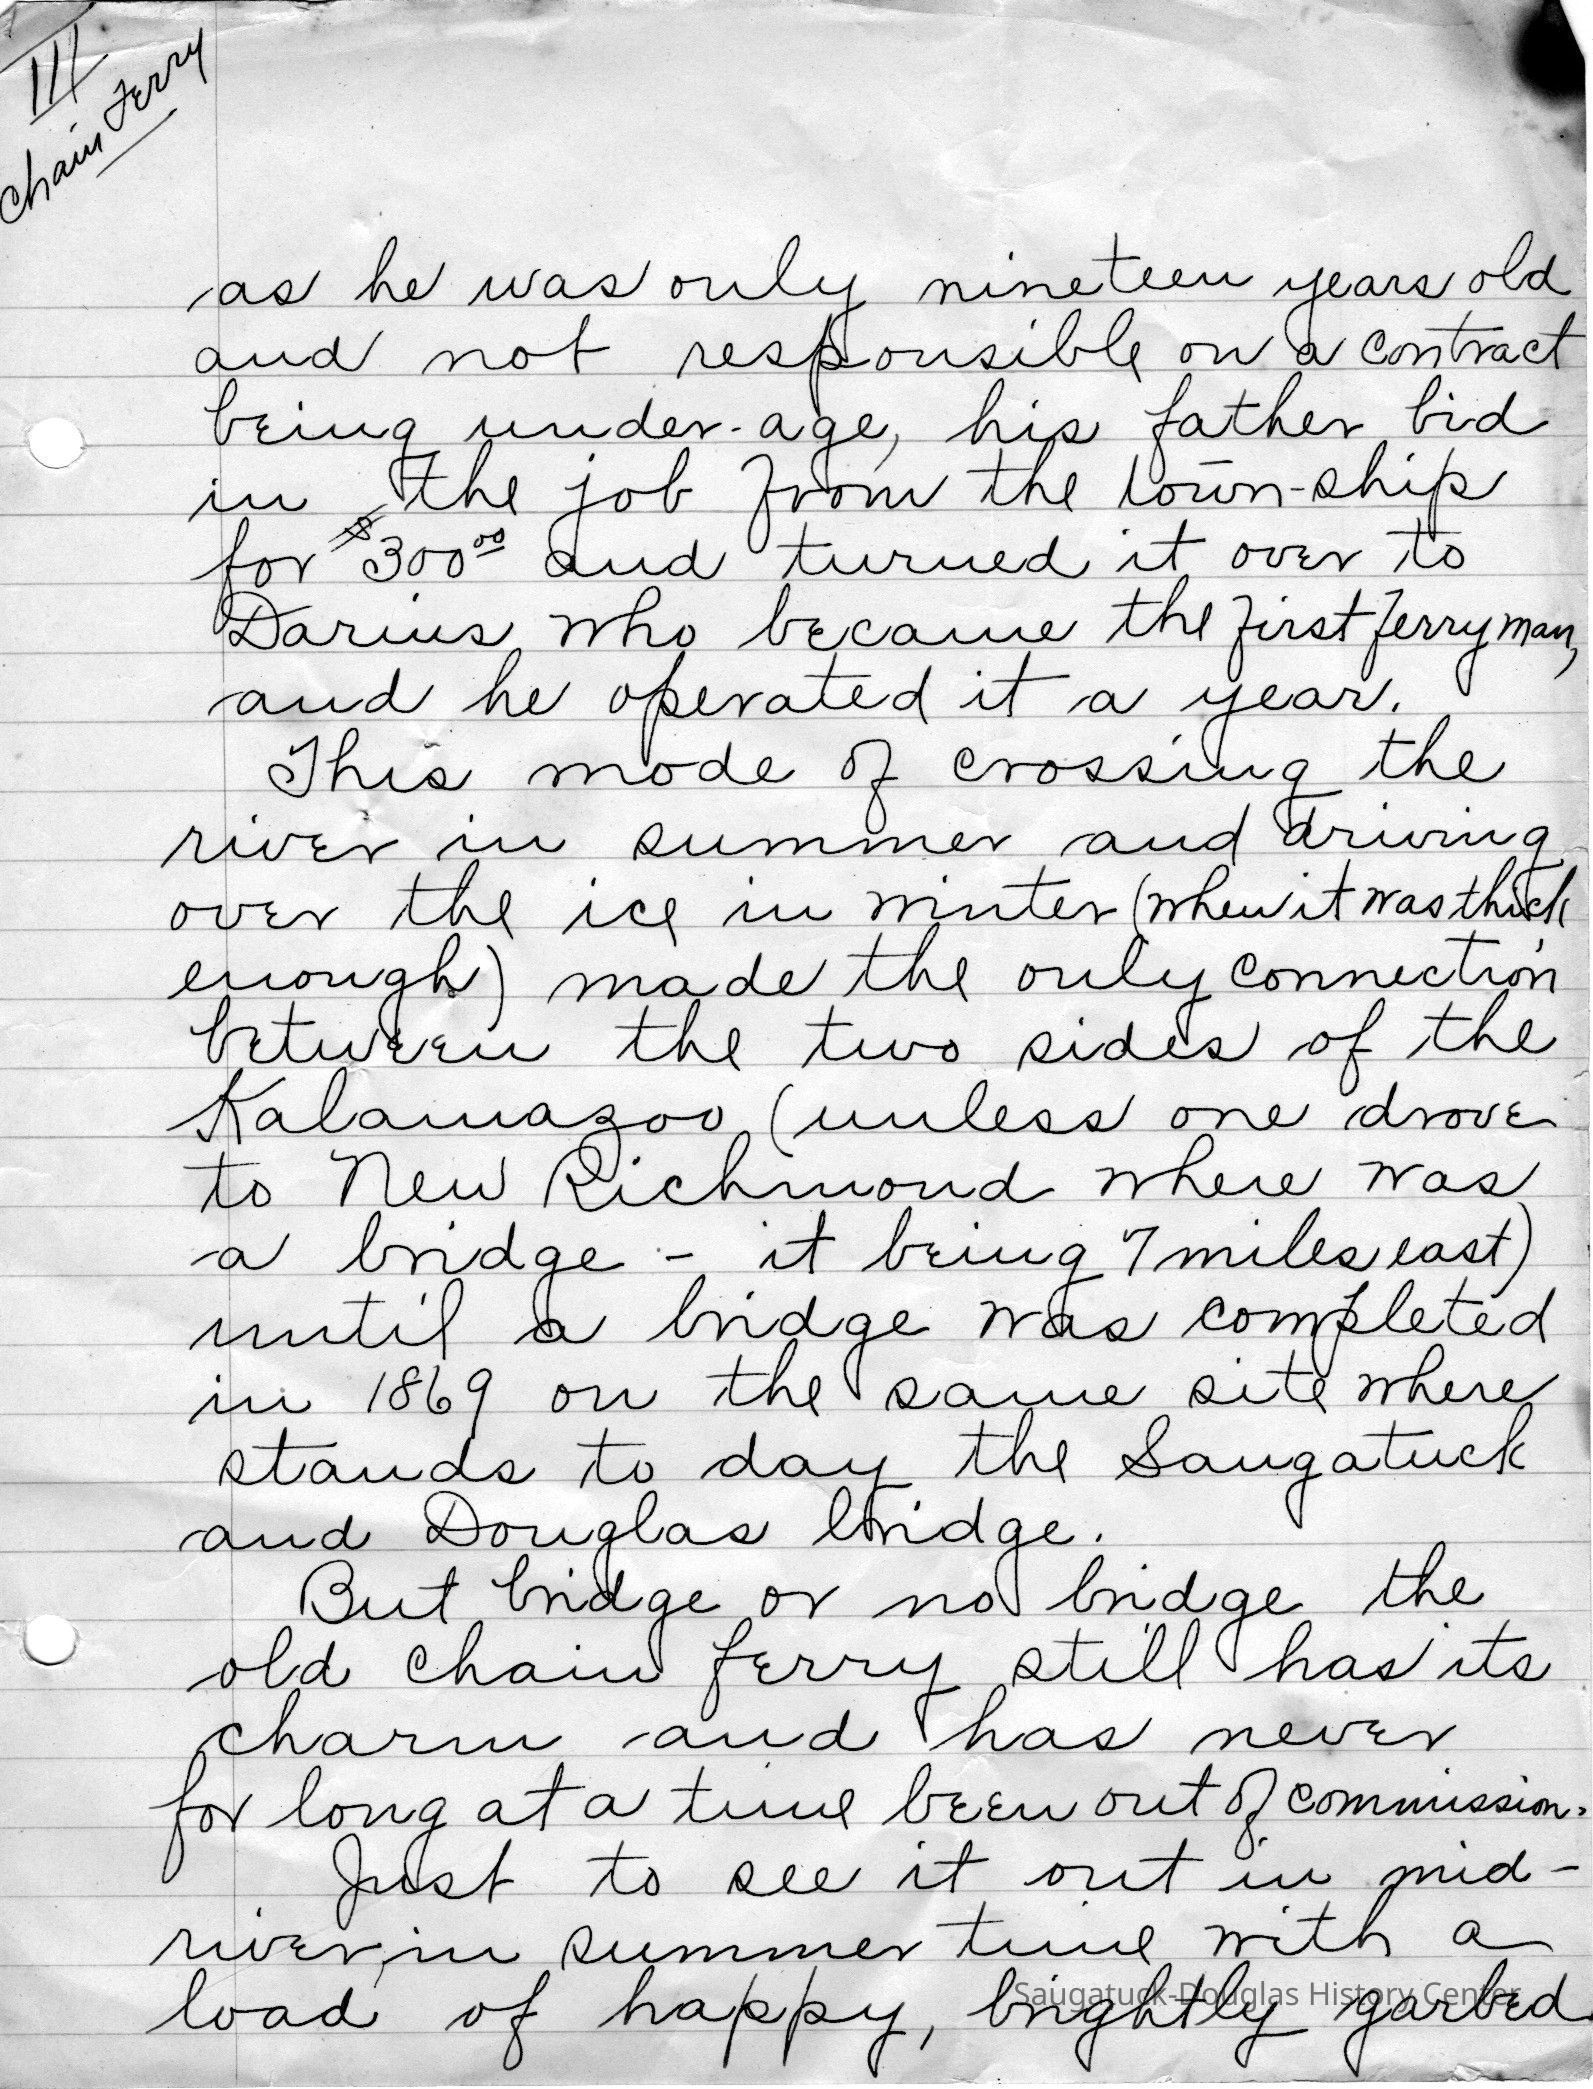 III
Chain Ferry
as he was only nineteen years old
and not responsible on a contract
being under-age, his father bid
in the job from the town-ship
for $300.00 and turned it over to
Darius who became the first ferry man,
and he operated it a year.
This mode of crossing the
river in summer and driving
over the ice in winter (when it was thick
enough) made the only connection
between the two sides of the
Kalamazoo (unless one drove
to New Richmond where was
a bridge - it being 7 miles east)
until a bridge was completed
in 1869 on the same site where
stands to day the Saugatuck
and Douglas bridge.
But bridge or no bridge the
old chain ferry still has its
charm and has never
for long at a time been out of commission.
Just to see it out in mid-
river, in summer time with a
load of happy, brightly garbed
Saugatuck-Douglas History Center